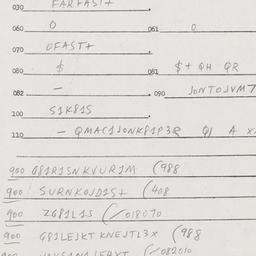 030 FARFAST+
060 0 061 0
070 OFAST+
080 $ 081 $+ QH QR
082 — 090 JONTOJVM7
100 S1K81S
110 — QMAC1JONK81P3R QJ A X
900 G81R1SNKVUR1M (988
900 SURNKOJD1S+ (408
900 ZG81L1S (✓018070
900 G81LEJKT KNEJTL3X (988
900 (✓082010